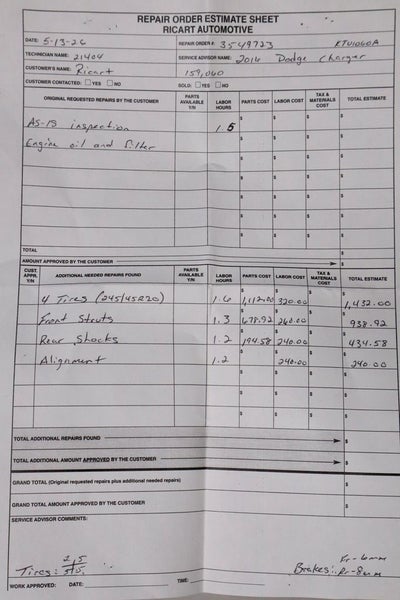 REPAIR ORDER ESTIMATE SHEET
RICART AUTOMOTIVE
DATE: 5-13-26 REPAIR ORDER #: 3549723 KTU1060A
TECHNICIAN NAME: 21404 SERVICE ADVISOR NAME: 2016 Dodge Charger
CUSTOMER'S NAME: Ricart 159,060
CUSTOMER CONTACTED: ☐ YES ☐ NO SOLD: ☐ YES ☐ NO
ORIGINAL REQUESTED REPAIRS BY THE CUSTOMER PARTS AVAILABLE Y/N LABOR HOURS PARTS COST LABOR COST TAX & MATERIALS COST TOTAL ESTIMATE
AS-IS inspection 1.5 $ $ $ $
Engine oil and filter $ $ $ $
$ $ $ $
$ $ $ $
$ $ $ $
$ $ $ $
$ $ $ $
TOTAL $
AMOUNT APPROVED BY THE CUSTOMER $
CUST. APPR. Y/N ADDITIONAL NEEDED REPAIRS FOUND PARTS AVAILABLE Y/N LABOR HOURS PARTS COST LABOR COST TAX & MATERIALS COST TOTAL ESTIMATE
4 Tires (245/45R20) 1.6 $1,112.00 $320.00 $ $1,432.00
Front Struts 1.3 $678.92 $260.00 $ $938.92
Rear Shocks 1.2 $194.58 $240.00 $ $434.58
Alignment 1.2 $ $240.00 $ $240.00
$ $ $ $
$ $ $ $
$ $ $ $
TOTAL ADDITIONAL REPAIRS FOUND $
TOTAL ADDITIONAL AMOUNT APPROVED BY THE CUSTOMER $
GRAND TOTAL (Original requests plus additional needed repairs) $
GRAND TOTAL AMOUNT APPROVED BY THE CUSTOMER $
SERVICE ADVISOR COMMENTS:
Fr-6mm
Tires: Brakes: Rr-8mm
WORK APPROVED: DATE: TIME: